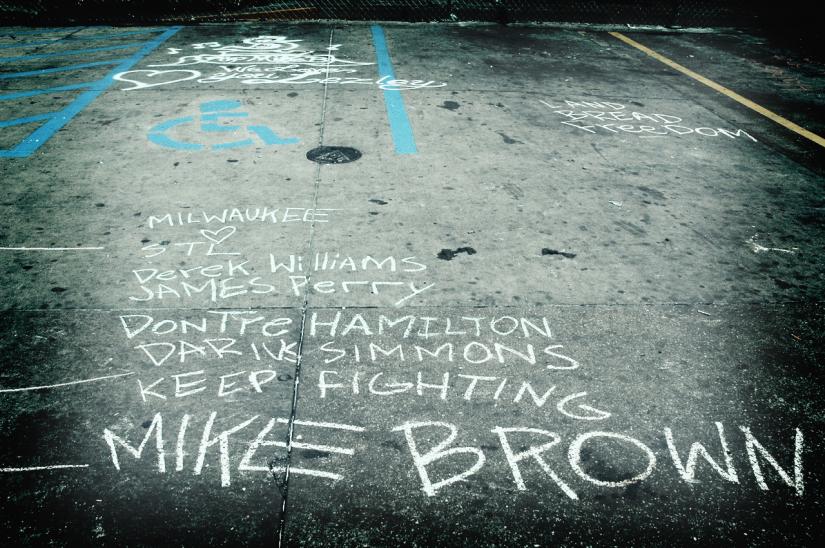 LAND
BREAD
FreeDOM
MILWAUKEE
STL
Derek Williams
JAMES Perry
DONTre HAMILTON
DARIUS SIMMONS
KEEP FIGHTING
MIKE BROWN